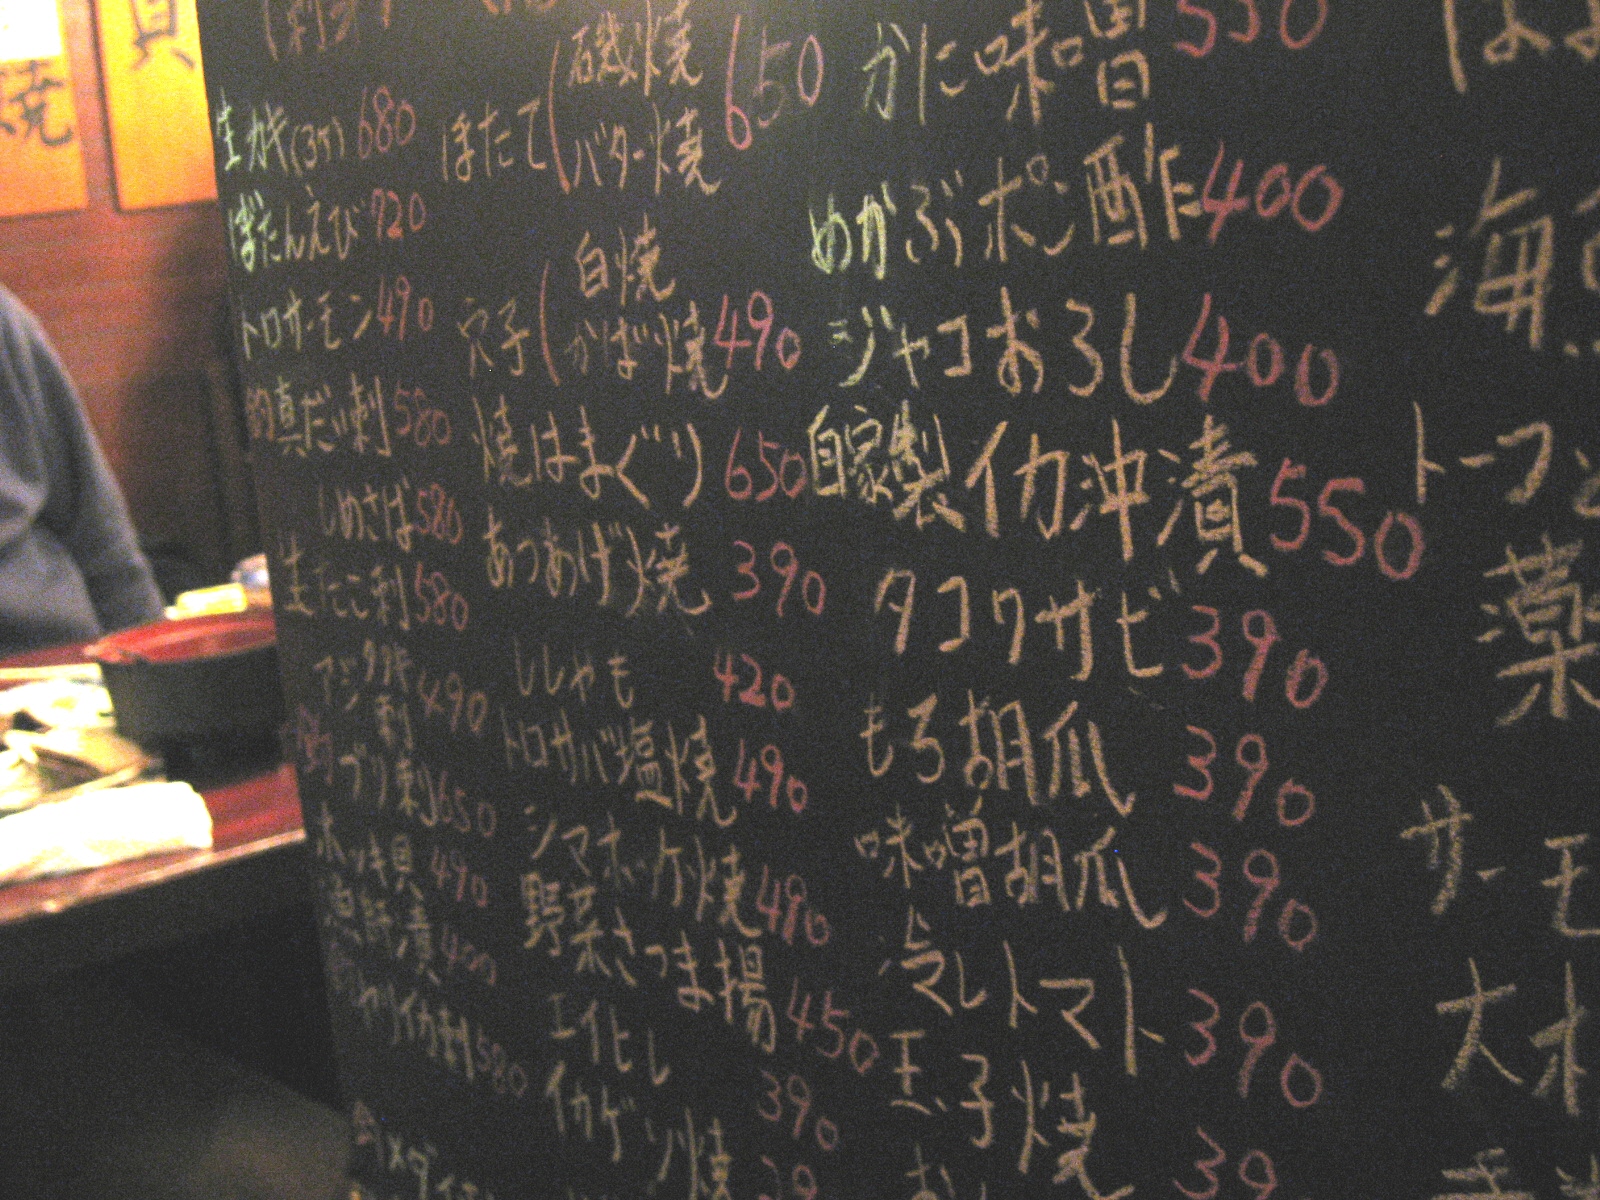 貝
焼
(刺身)
生カキ(3ケ) 680
ぼたんえび 720
トロサーモン 490
的真だい刺 580
しめさば 580
生たこ刺 580
アジタタキ
刺 490
ブリ刺 650
ホッキ貝 490
400
ヤリイカ刺 580
ほたて 磯焼 650
バター焼
穴子 白焼 490
かば焼
焼はまぐり 650
あつあげ焼 390
ししゃも 420
トロサバ塩焼 490
シマホッケ焼 490
野菜さつま揚 450
エイヒレ 390
イカゲソ焼 39
かに味噌 550
めかぶポン酢 400
ジャコおろし 400
自家製イカ沖漬 550
タコワサビ 390
もろ胡瓜 390
味噌胡瓜 390
冷しトマト 390
玉子焼 39
お
は
海
トーフ
薬
サーモ
大